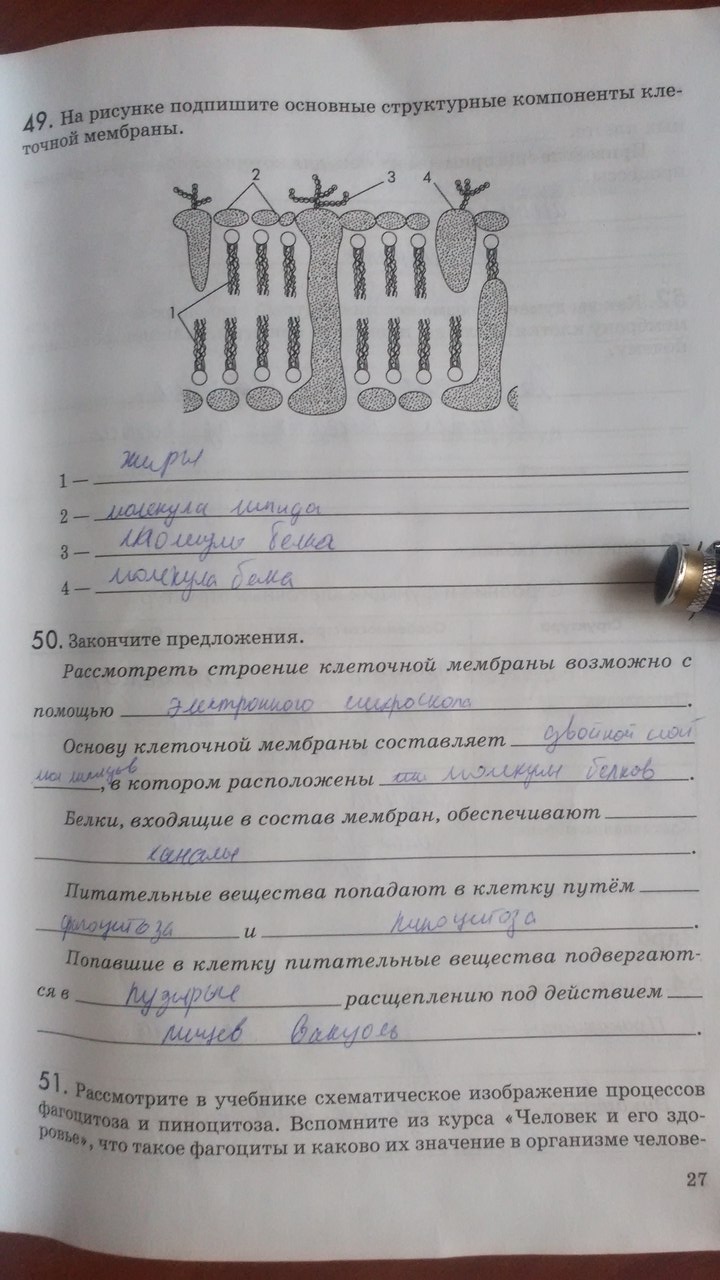 49. На рисунке подпишите основные структурные компоненты кле-
точной мембраны.
2 3 4
1
1 — жиры
2 — молекула липида
3 — молекулы белка
4 — молекула белка
50. Закончите предложения.
Рассмотреть строение клеточной мембраны возможно с
помощью электронного микроскопа.
Основу клеточной мембраны составляет двойной слой
липидов, в котором расположены молекулы белков.
Белки, входящие в состав мембран, обеспечивают
каналы.
Питательные вещества попадают в клетку путём
фагоцитоза и пиноцитоза.
Попавшие в клетку питательные вещества подвергают-
ся в пузырьке расщеплению под действием
пищев вакуоль.
51. Рассмотрите в учебнике схематическое изображение процессов
фагоцитоза и пиноцитоза. Вспомните из курса «Человек и его здо-
ровье», что такое фагоциты и каково их значение в организме челове-
27